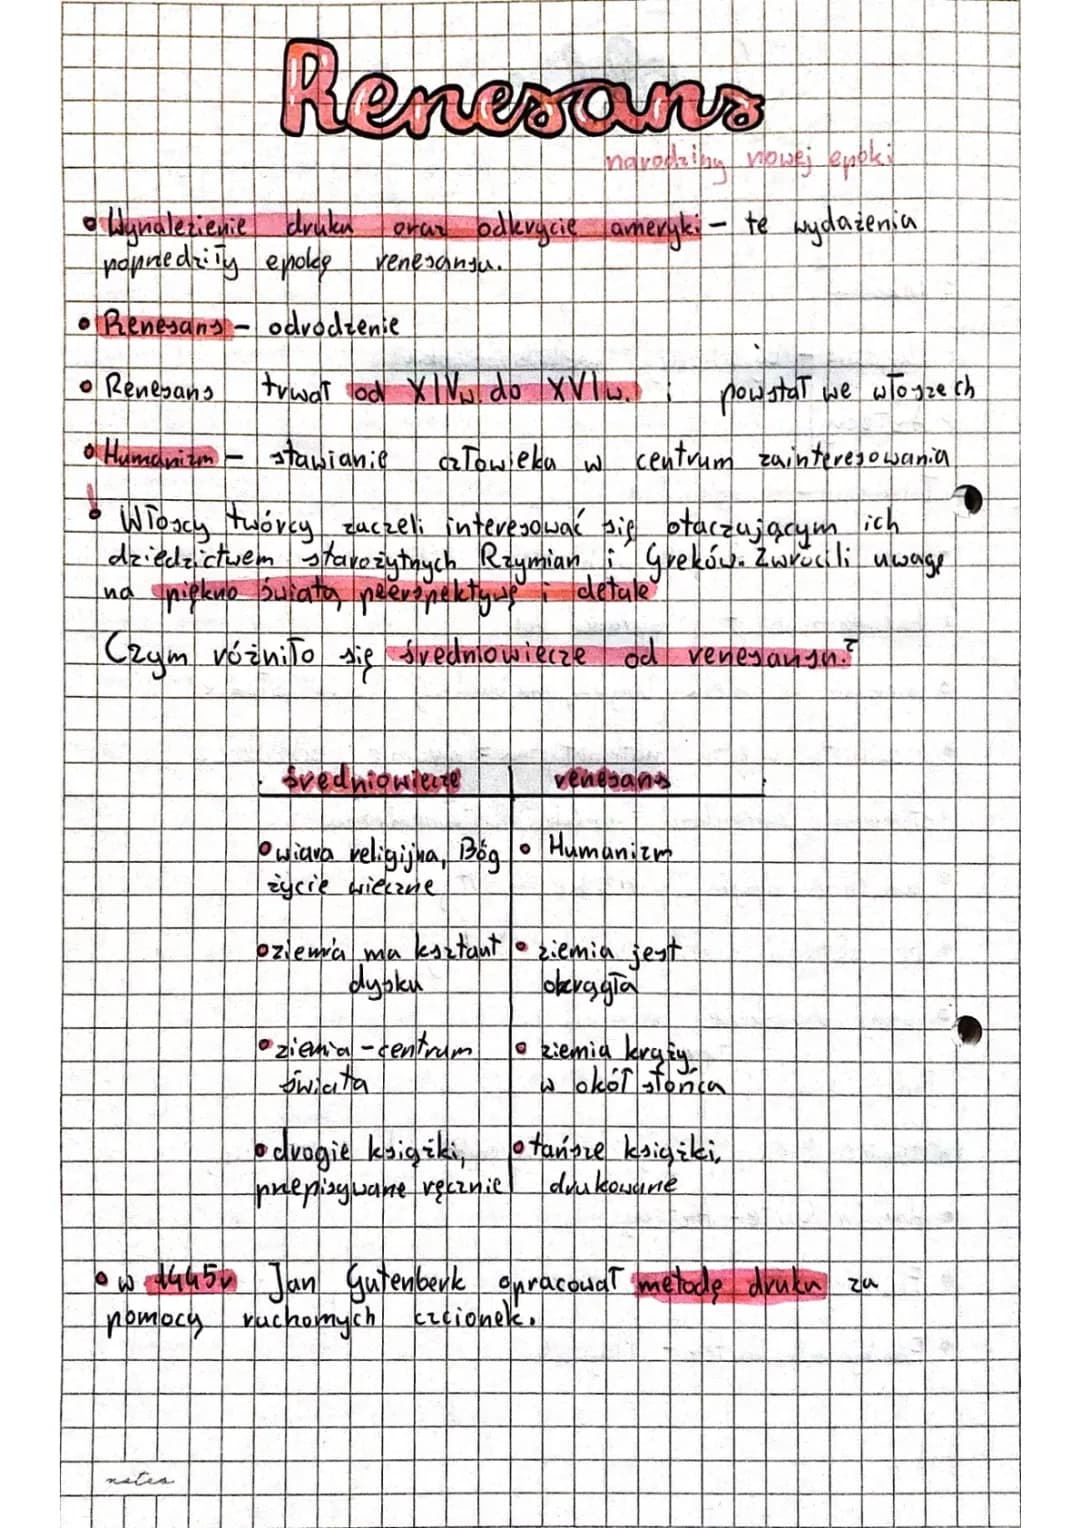 Renesans
narodziny nowej epoki
• Wynalezienie druku oraz odkrycie ameryki – te wydażenia
poprzedziły epokę renesansu.
• Renesans – odrodzenie
• Renesans trwał od XIVw. do XVIw. i powstał we włoszech
• Humanizm – stawianie człowieka w centrum zainteresowania
! Włoscy twórcy zaczeli interesować się otaczującym ich
dziedzictwem starożytnych Rzymian i Greków. Zwrócili uwagę
na piękno świata, peerspektywę i detale
Czym różniło się średniowiecze od renesansu?
średniowiecze renesans
• wiara religijna, Bóg • Humanizm
życie wieczne
• ziemia ma kształt • ziemia jest
dysku okrągła
• ziemia – centrum • ziemia krąży
świata w okół słońca
• drogie książki, • tańsze książki,
przepisywane ręcznie drukowane
• w 1445r Jan Gutenberk opracował metodę druku za
pomocą ruchomych czcionek.
notes